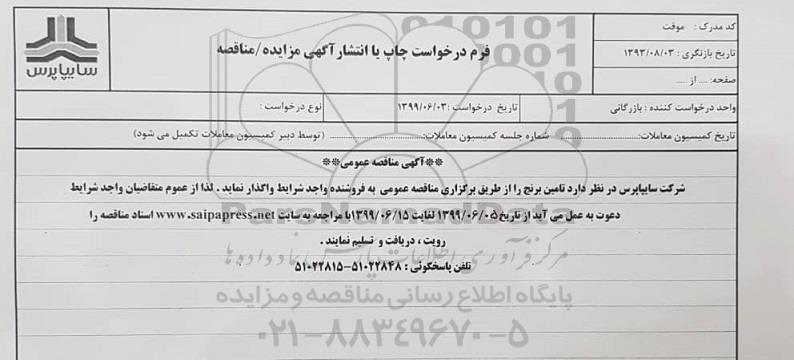 کد مدرک : موقت
تاریخ بازنگری : ۱۳۹۳/۰۸/۰۳
صفحه: .... از ....
فرم درخواست چاپ یا انتشار آگهی مزایده/مناقصه
سایپاپرس
واحد درخواست کننده : بازرگانی
تاریخ درخواست :۱۳۹۹/۰۶/۰۳
نوع درخواست :
تاریخ کمیسیون معاملات:............................ شماره جلسه کمیسیون معاملات:............................ (توسط دبیر کمیسیون معاملات تکمیل می شود)
**آگهی مناقصه عمومی**
شرکت سایپاپرس در نظر دارد تامین برنج را از طریق برگزاری مناقصه عمومی به فروشنده واجد شرایط واگذار نماید . لذا از عموم متقاضیان واجد شرایط
دعوت به عمل می آید از تاریخ ۱۳۹۹/۰۶/۰۵ لغایت ۱۳۹۹/۰۶/۱۵ با مراجعه به سایت www.saipapress.net اسناد مناقصه را
رویت ، دریافت و تسلیم نمایند .
تلفن پاسخگوئی : ۵۱۰۲۲۸۴۸-۵۱۰۲۲۸۱۵
ParsNamadData
مرکز فرآوری اطلاعات پارس نماد داده ها
پایگاه اطلاع رسانی مناقصه و مزایده
۰۲۱-۸۸۳۴۹۶۷۰-۵